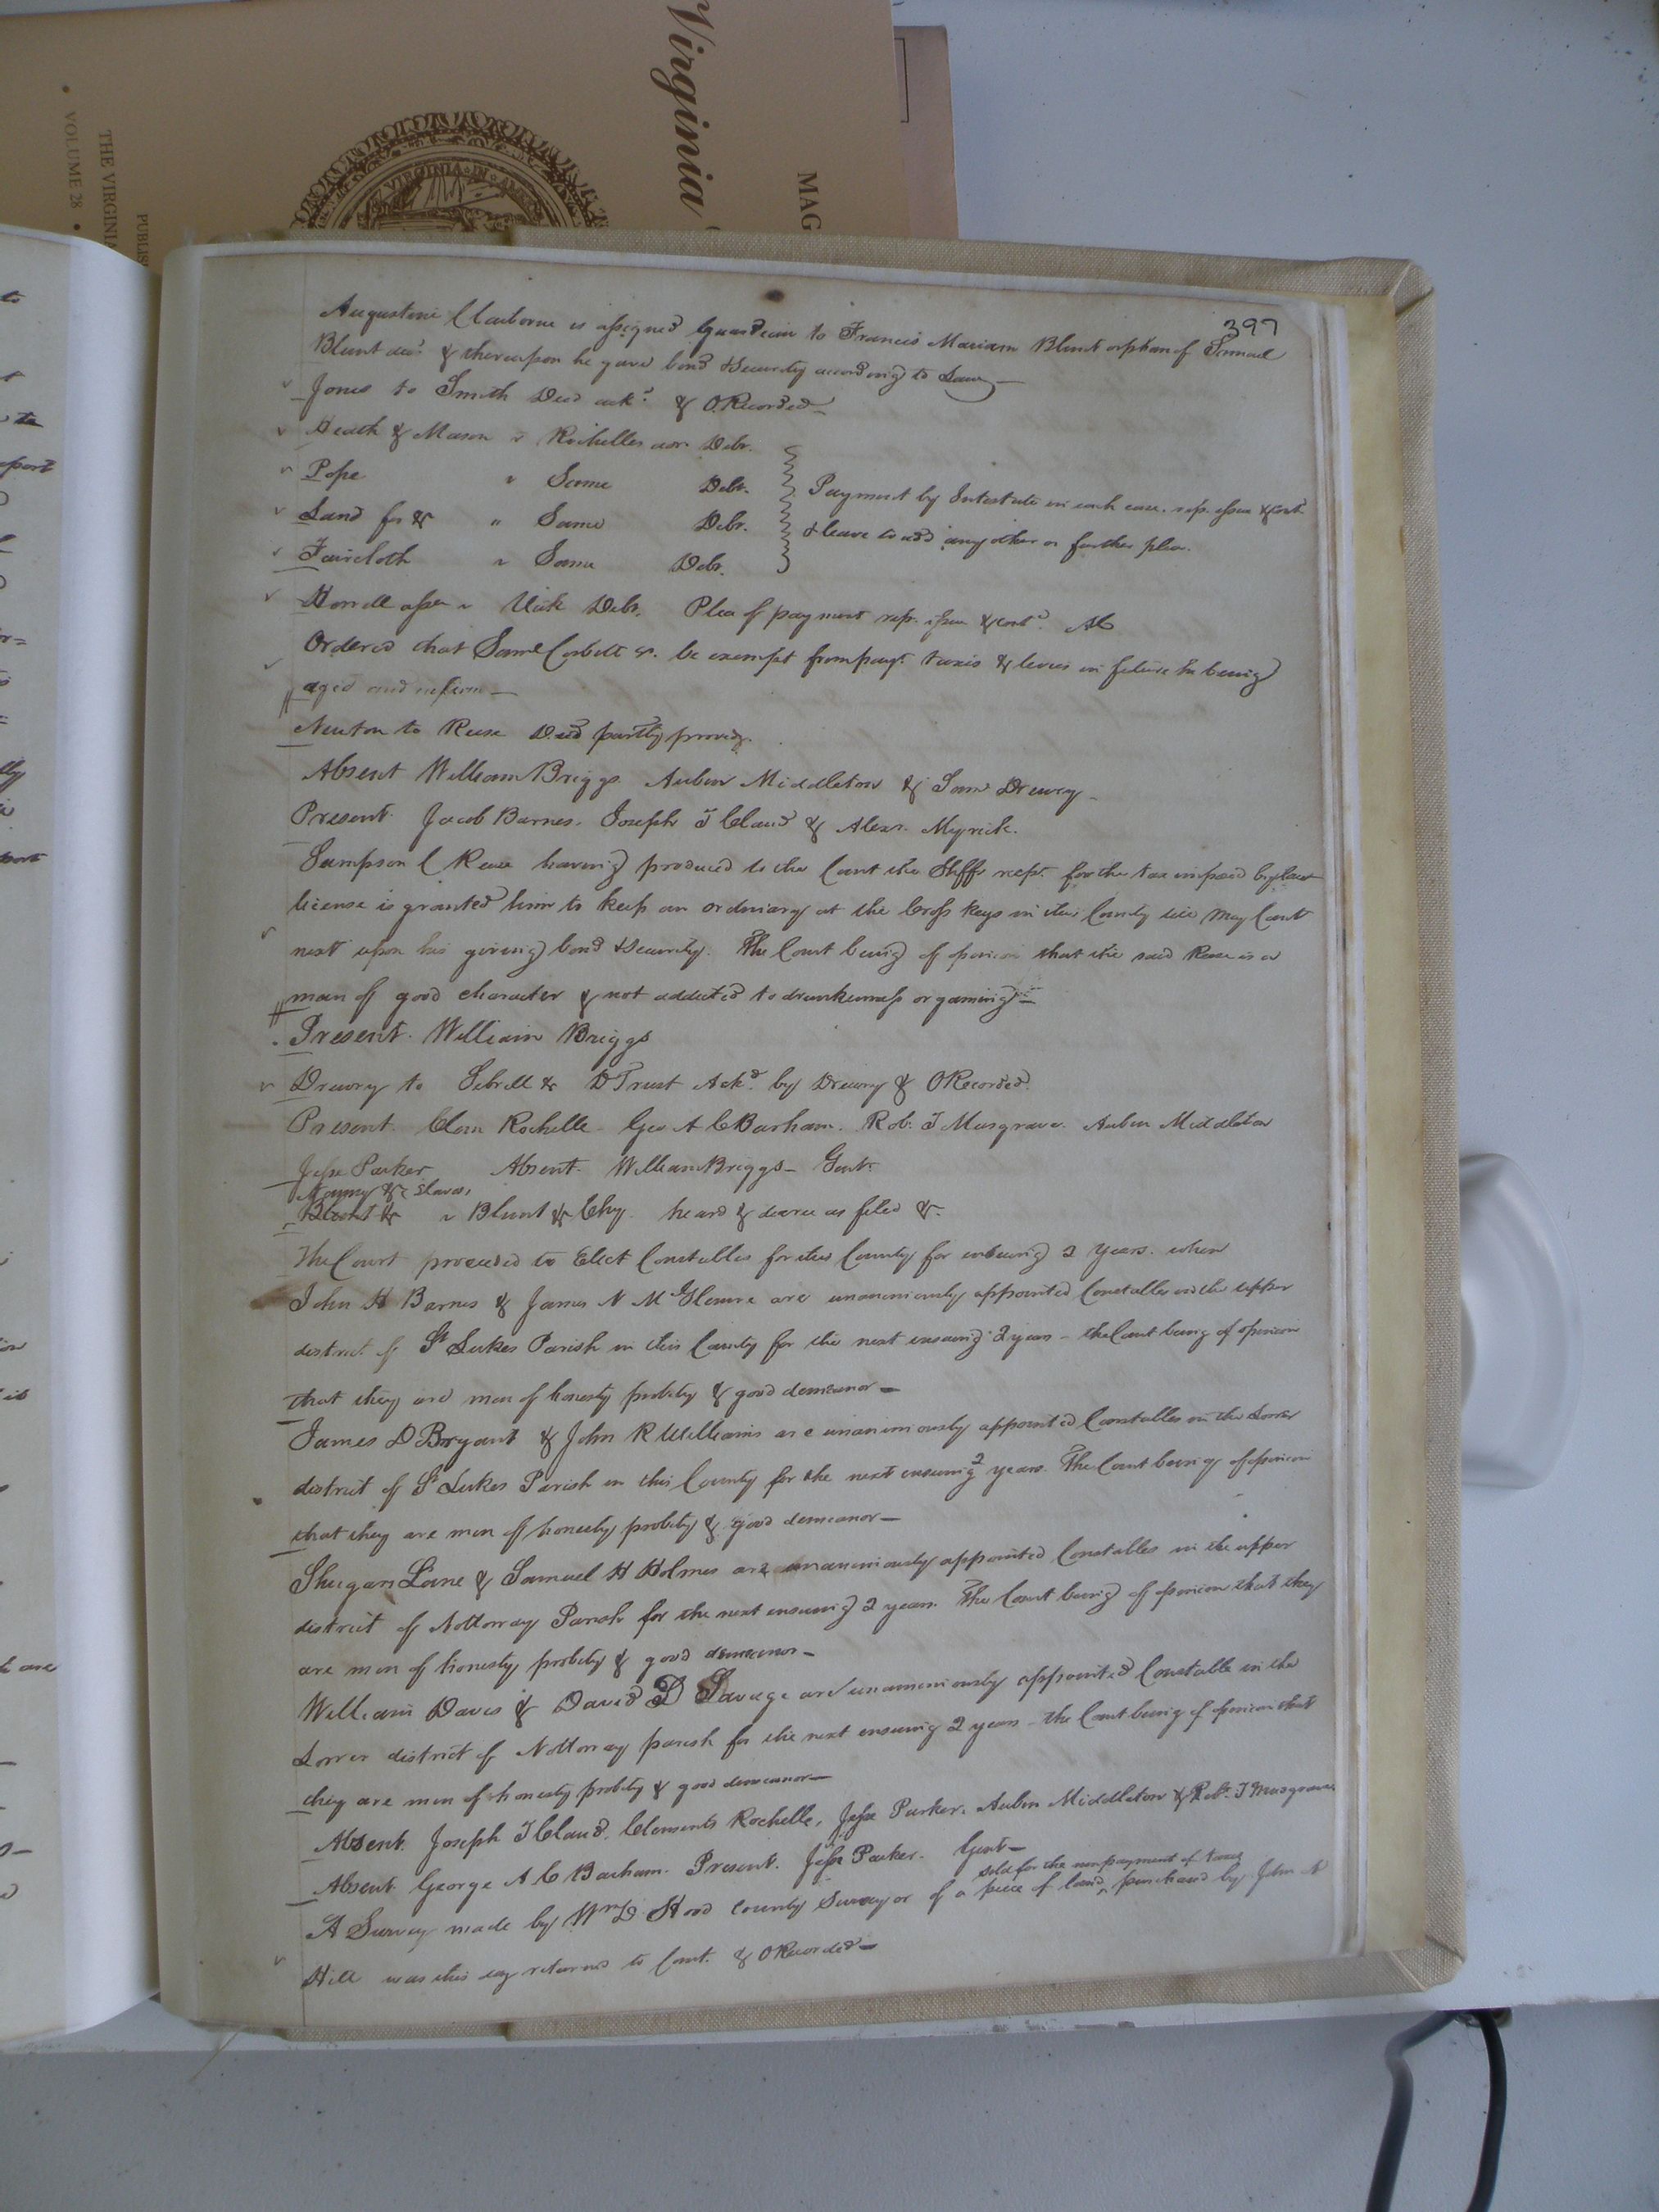 Virginia
MAG
THE VIRGINIA
VOLUME 28
PUBLIS
VIRGINIA IN
397
Augustine Claiborne is assigned Guardian to Francis Mariam Blunt orphan of Samuel
Blunt decd. & thereupon he gave bond & Security according to Law
Jones to Smith Deed ackd. & O. Recorded
Heath & Mason v Rochelles adr. Debt.
Pope v Same Debt.
Land for &c " Same Debt.
Payment by Intestate in each case. rep. issue & contd.
& leave to add any other or further plea.
Faircloth v Same Debt.
Harrell assee v Vick Debt. Plea of payment rep. issue & contd.
Ordered that Saml Corbett sr. be exempt from payt. taxes & levies in future he being
aged and infirm
Newton to Reese Deed partly proved.
Absent William Briggs. Aubin Middleton & Saml Drewry
Present. Jacob Barnes. Joseph T Claud & Alexr. Myrick.
Sampson C Reese having produced to the Court the Shffs rept. for the tax imposed by law
license is granted him to keep an ordinary at the Cross keys in this County till May Court
next upon his giving bond & Security. The Court being of opinion that the said Reese is a
man of good character & not addicted to drunkenness or gaming
Present. William Briggs
Drewry to Sebrell &c D Trust Ackd. by Drewry & O Recorded.
Present. Clem Rochelle Geo A C Barham. Rob. T Musgrave. Aubin Middleton
Jesse Parker Absent. William Briggs Gent.
&c Slaves,
Blunt &c v Blunt &c Chy. heard & decree as filed &c.
The Court proceeded to Elect Constables for this County for ensuing 2 Years. when
John H Barnes & James N McGlemre are unanimously appointed Constables in the upper
district of St Lukes Parish in this County for the next ensuing 2 years - the Court being of opinion
that they are men of honesty probity & good demeanor
James D Bryant & John R Williams are unanimously appointed Constables in the Lower
district of St Lukes Parish in this County for the next ensuing 2 years. The Court being of opinion
that they are men of honesty, probity & good demeanor
Shugars Lane & Samuel H Holmes are unanimously appointed Constables in the upper
district of Nottoway Parish for the next ensuing 2 years. The Court being of opinion that they
are men of honesty, probity & good demeanor
William Davis & David D Savage are unanimously appointed Constable in the
Lower district of Nottoway parish for the next ensuing 2 years - the Court being of opinion that
they are men of honesty probity & good demeanor
Absent. Joseph T Claud, Clements Rochelle, Jesse Parker. Aubin Middleton & Robt. T Musgrave
Absent. George A C Barham. Present. Jesse Parker. Gent
sold for the nonpayment of taxes
A Survey made by Wm D. Hood County Surveyor of a piece of land, purchased by John
Hill was this day returned to Court. & O Recorded